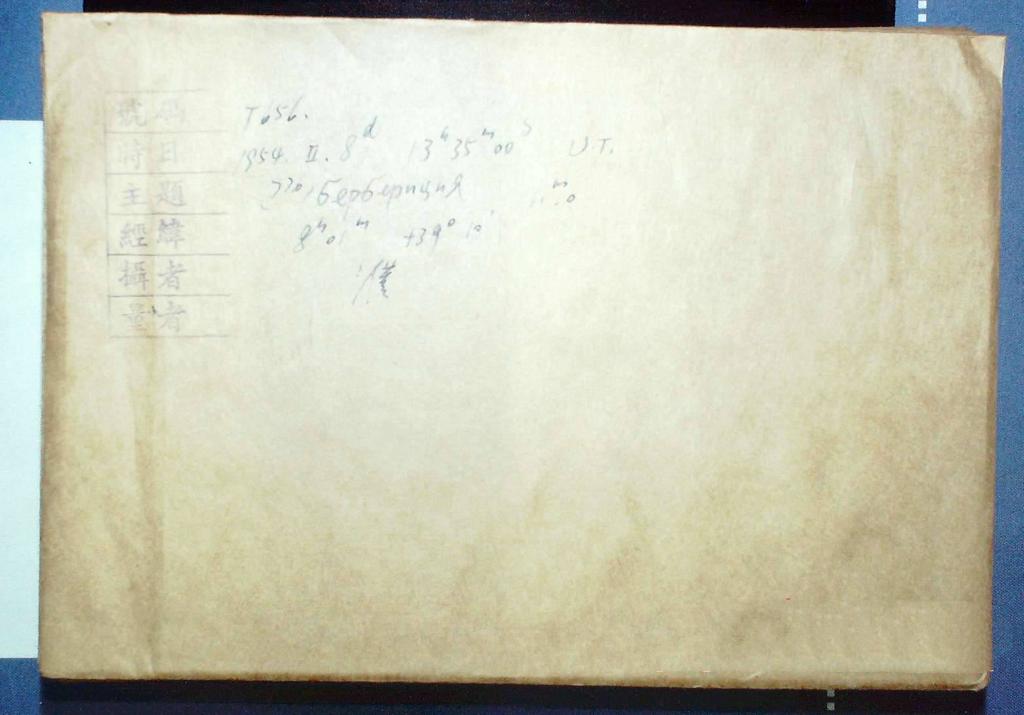 號碼 T656.
時日 1954. II. 8ᵈ 13ʰ35ᵐ00ˢ U.T.
主題 Берберициия 11ᵐ.0
經緯 8ʰ01ᵐ +39°10'
攝者
量者